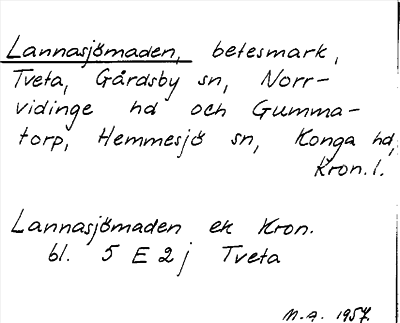 Lannasjömaden, betesmark,
Tveta, Gårdsby sn, Norr-
vidinge hd och Gumma-
torp, Hemmesjö sn, Konga hd,
Kron. l.
Lannasjömaden ek Kron.
bl. 5 E 2 j Tveta
M.A. 1957.